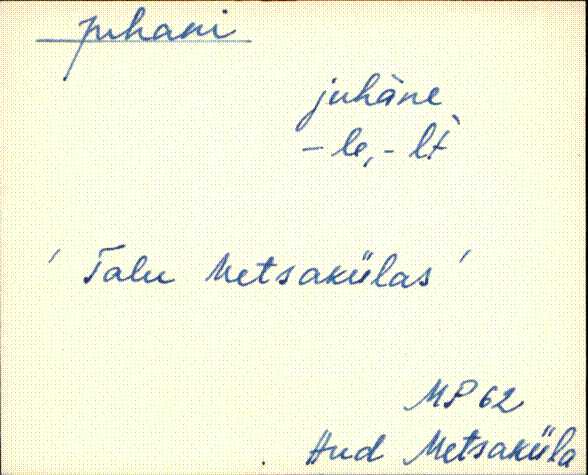 Juhani
juhàne
- le, - lt̀
' Talu Metsakülas '
MP 62
Hud Metsaküla